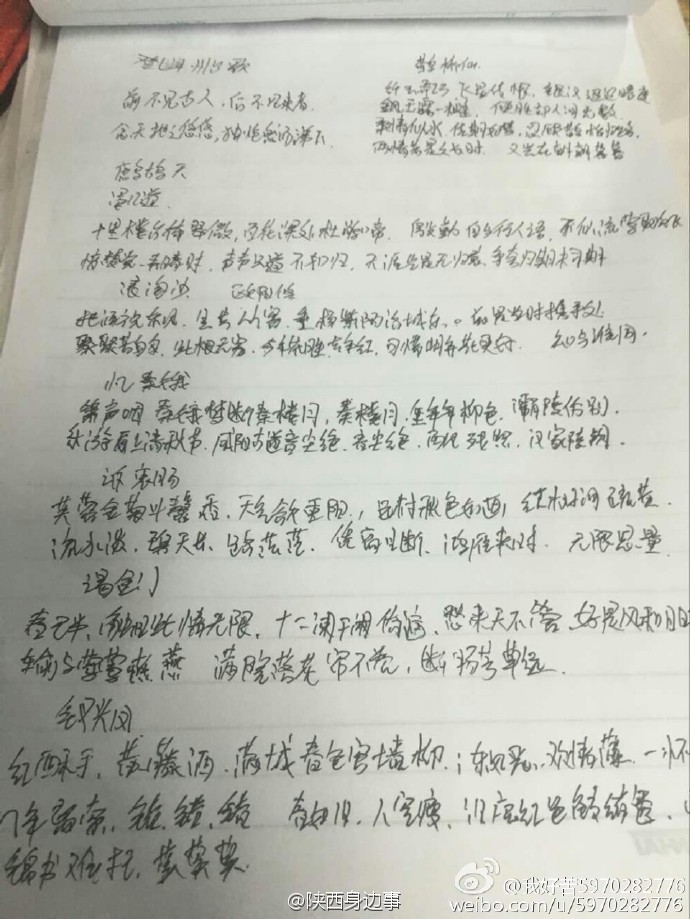 登幽州台歌
前不见古人，后不见来者。
念天地之悠悠，独怆然而涕下
鹊桥仙
纤云弄巧 飞星传恨，银汉迢迢暗度
金风玉露一相逢，便胜却人间无数
柔情似水，佳期如梦，忍顾鹊桥归路，
两情若是久长时 又岂在朝朝暮暮
鹧鸪天
十里楼台倚翠微，百花深处杜鹃啼 殷勤自与行人语，不似流莺取次飞
惊梦觉 弄晴时，声声只道不如归，天涯岂是无归意，争奈归期未可期
浪淘沙 欧阳修
把酒祝东风，且共从容，垂杨紫陌洛城东。总是当时携手处
聚散苦匆匆，此恨无穷，今年花胜去年红，可惜明年花更好 知与谁同
忆秦娥
箫声咽 秦娥梦断秦楼月，秦楼月，年年柳色，灞陵伤别，
乐游原上清秋节，咸阳古道音尘绝，音尘绝，西风残照，汉家陵阙
诉衷肠
芙蓉金菊斗馨香，天气欲重阳，远村秋色如画，红树间疏黄
流水淡，碧天长，路茫茫，凭高目断，鸿雁来时 无限思量
谒金门
春已半，触目此情无限，十二阑干闲倚遍，愁来天不管 好是风和日
输与莺莺燕燕 满院落花帘不卷，断肠芳草远
钗头凤
红酥手，黄藤酒，满城春色宫墙柳；东风恶，欢情薄 一怀
几年离索，错，错，错 春如旧，人空瘦，泪痕红浥鲛绡透，
锦书难托，莫莫莫
@陕西身边事
@我好苦5970282776
weibo.com/u/5970282776